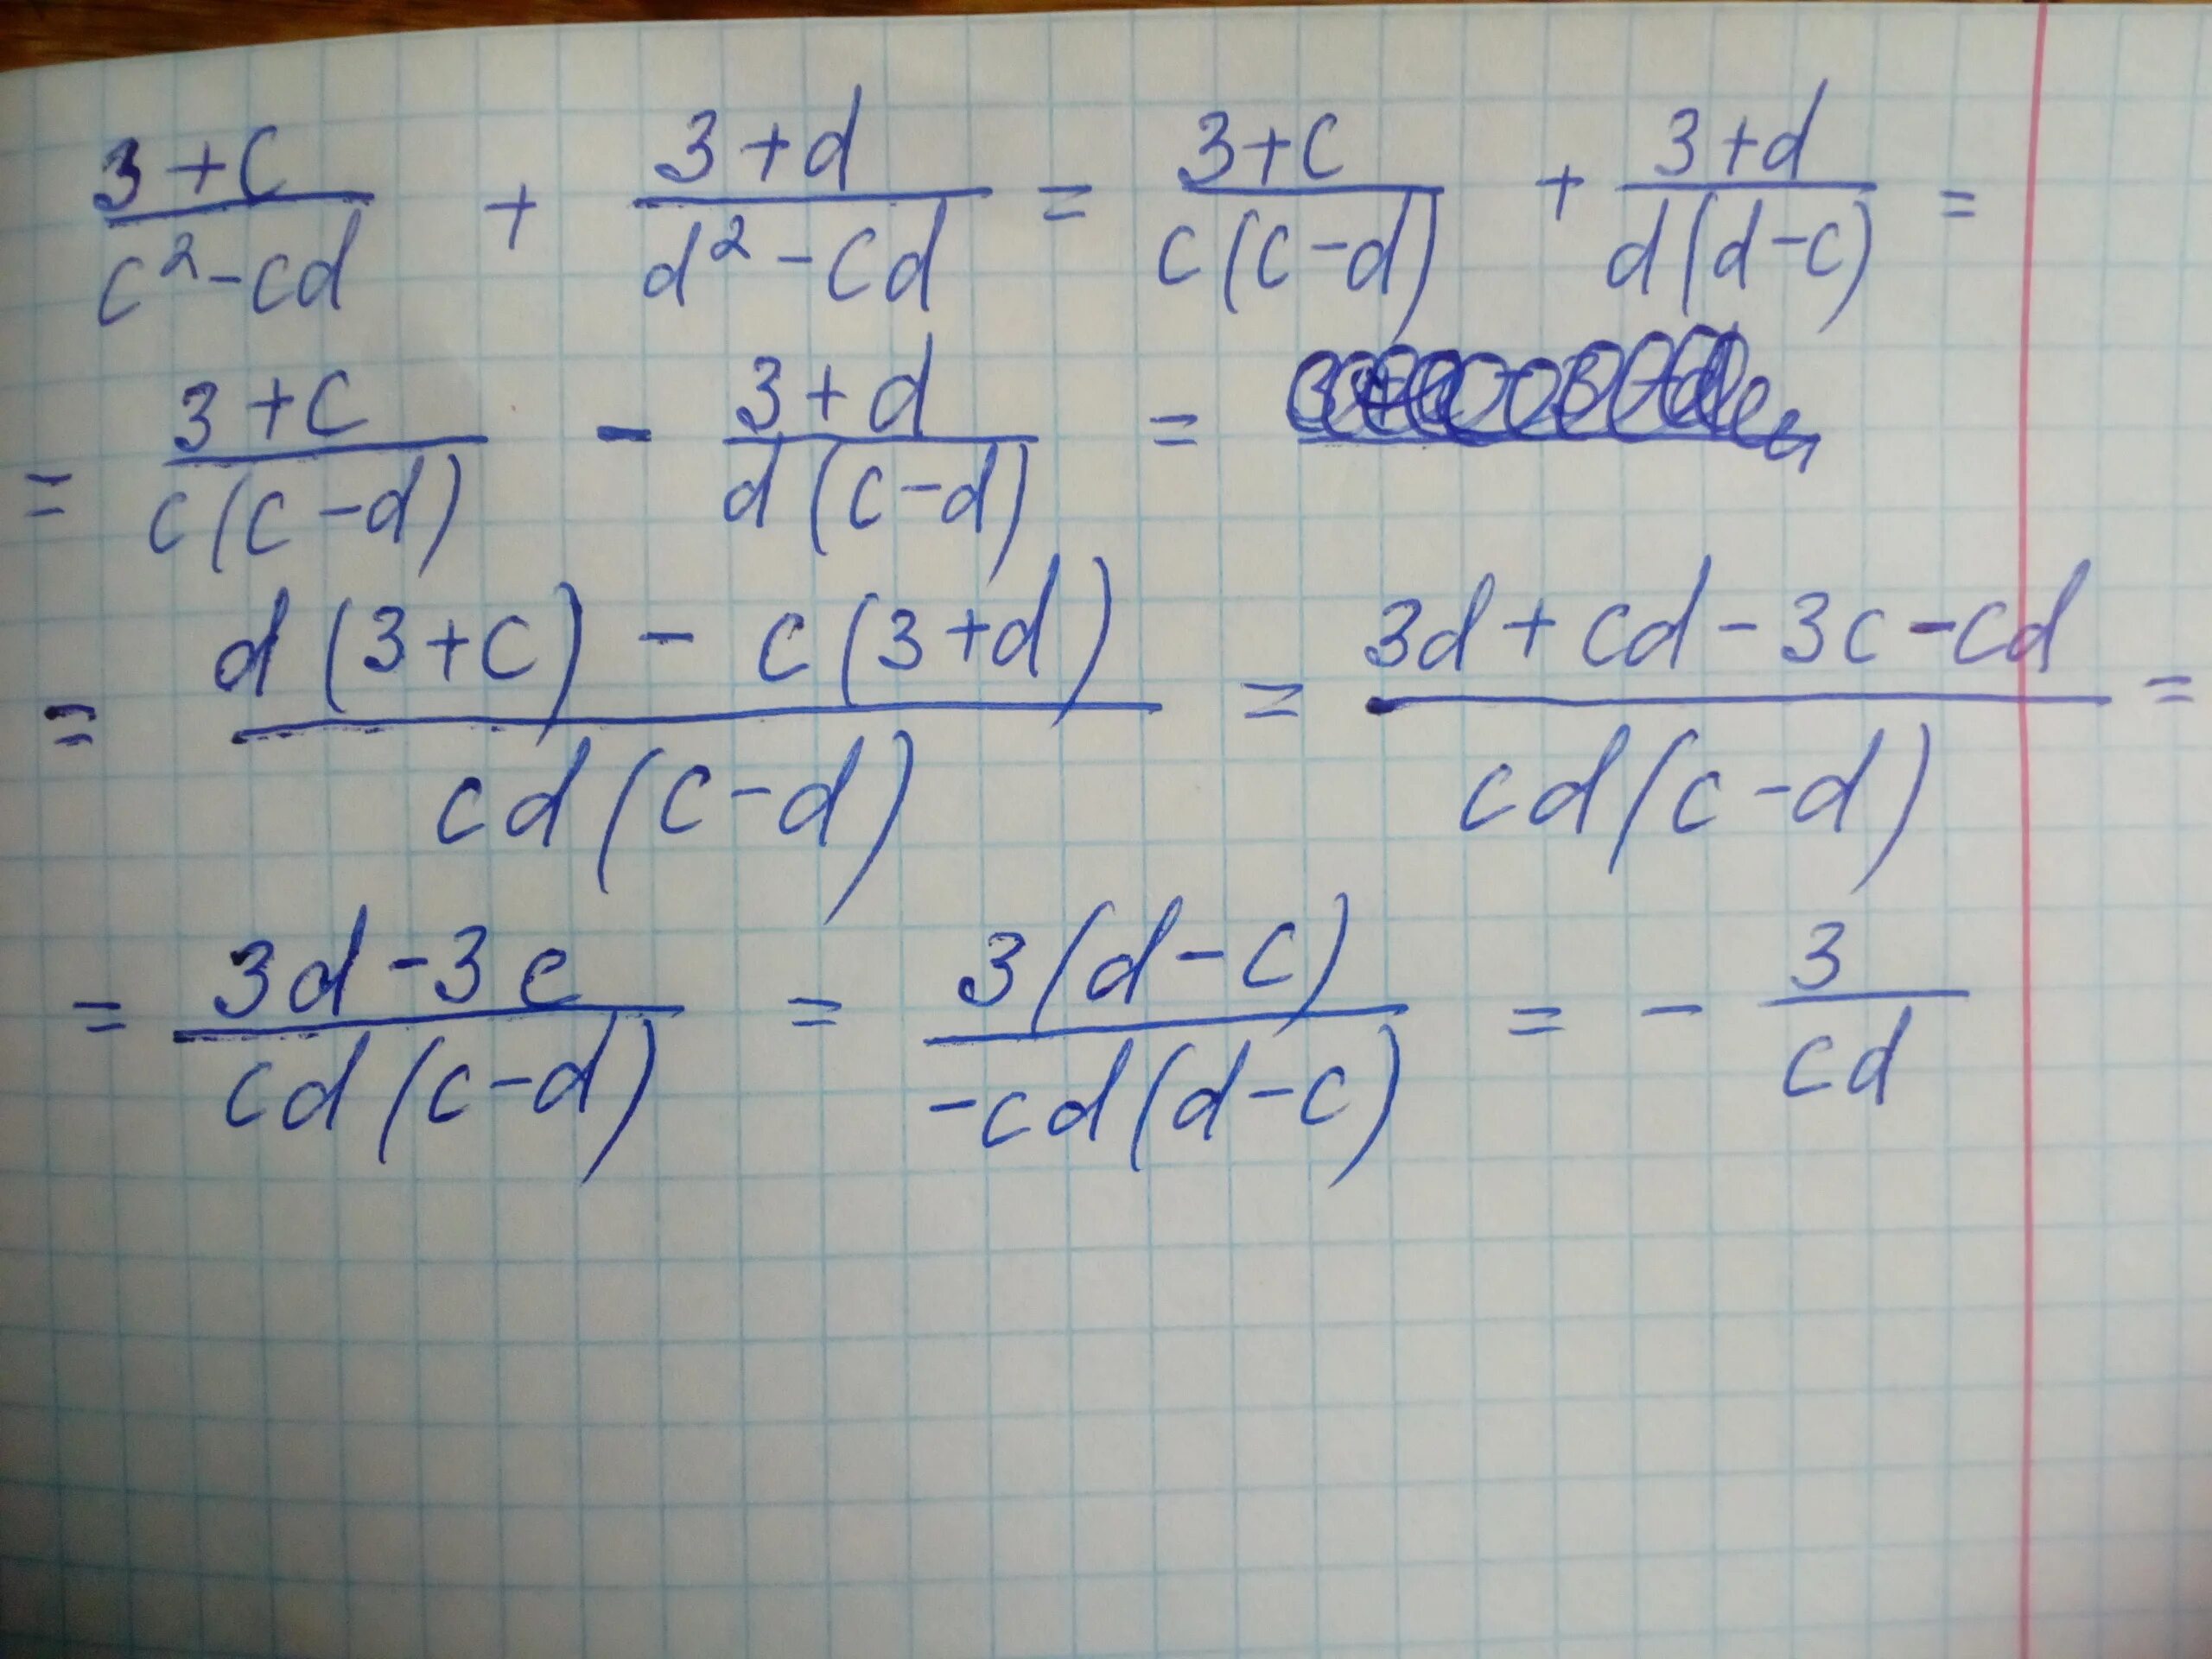 (3+c)/(c²-cd) + (3+d)/(d²-cd) = (3+c)/(c(c-d)) + (3+d)/(d(d-c)) =
= (3+c)/(c(c-d)) - (3+d)/(d(c-d)) =
= (d(3+c) - c(3+d))/(cd(c-d)) = (3d+cd-3c-cd)/(cd(c-d)) =
= (3d-3c)/(cd(c-d)) = (3(d-c))/(-cd(d-c)) = - 3/(cd)